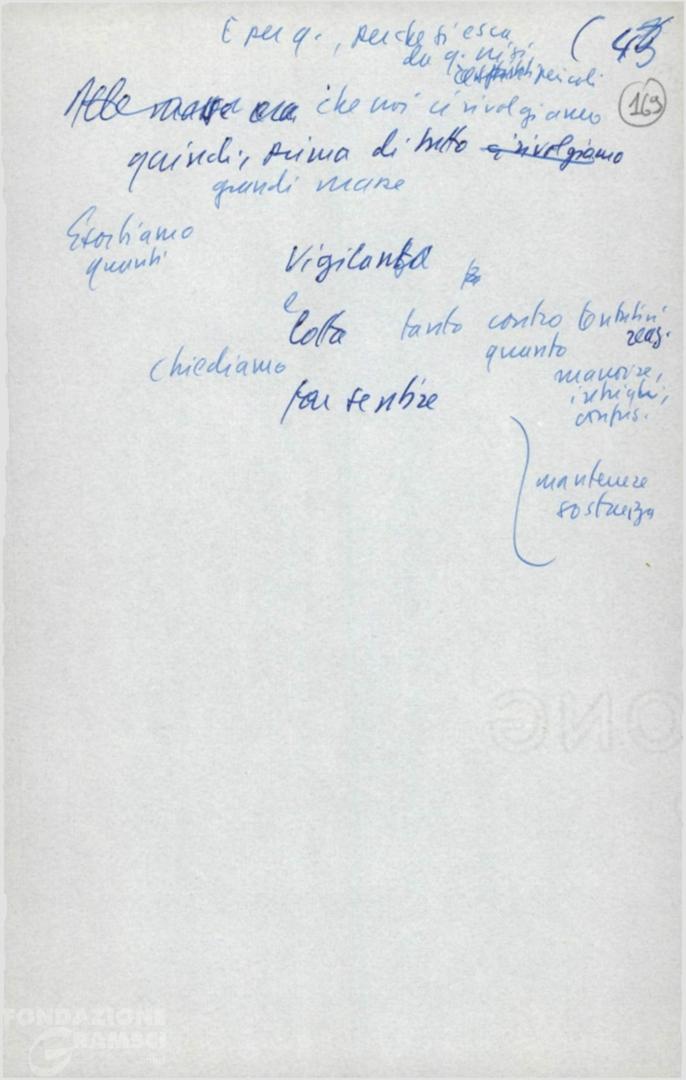 E per q., perché si esca
da q. crisi
pericoli
(45
169
Alle masse che noi ci rivolgiamo
quindi, prima di tutto ci rivolgiamo
grandi masse
Esortiamo
quanti
Vigilanza
e
Lotta tanto contro tentativi
reaz.
quanto
chiediamo
manovre,
intrighi,
confus.
far sentire
mantenere
sostanza
FONDAZIONE
GRAMSCI